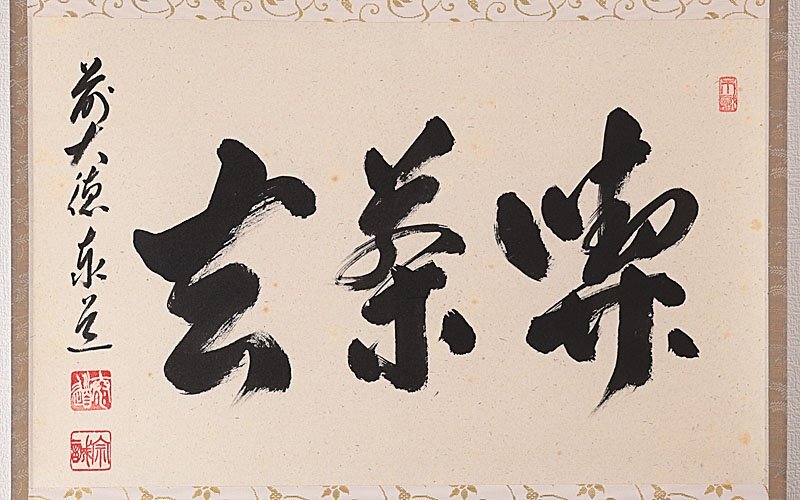 喫茶去
前大徳泰道